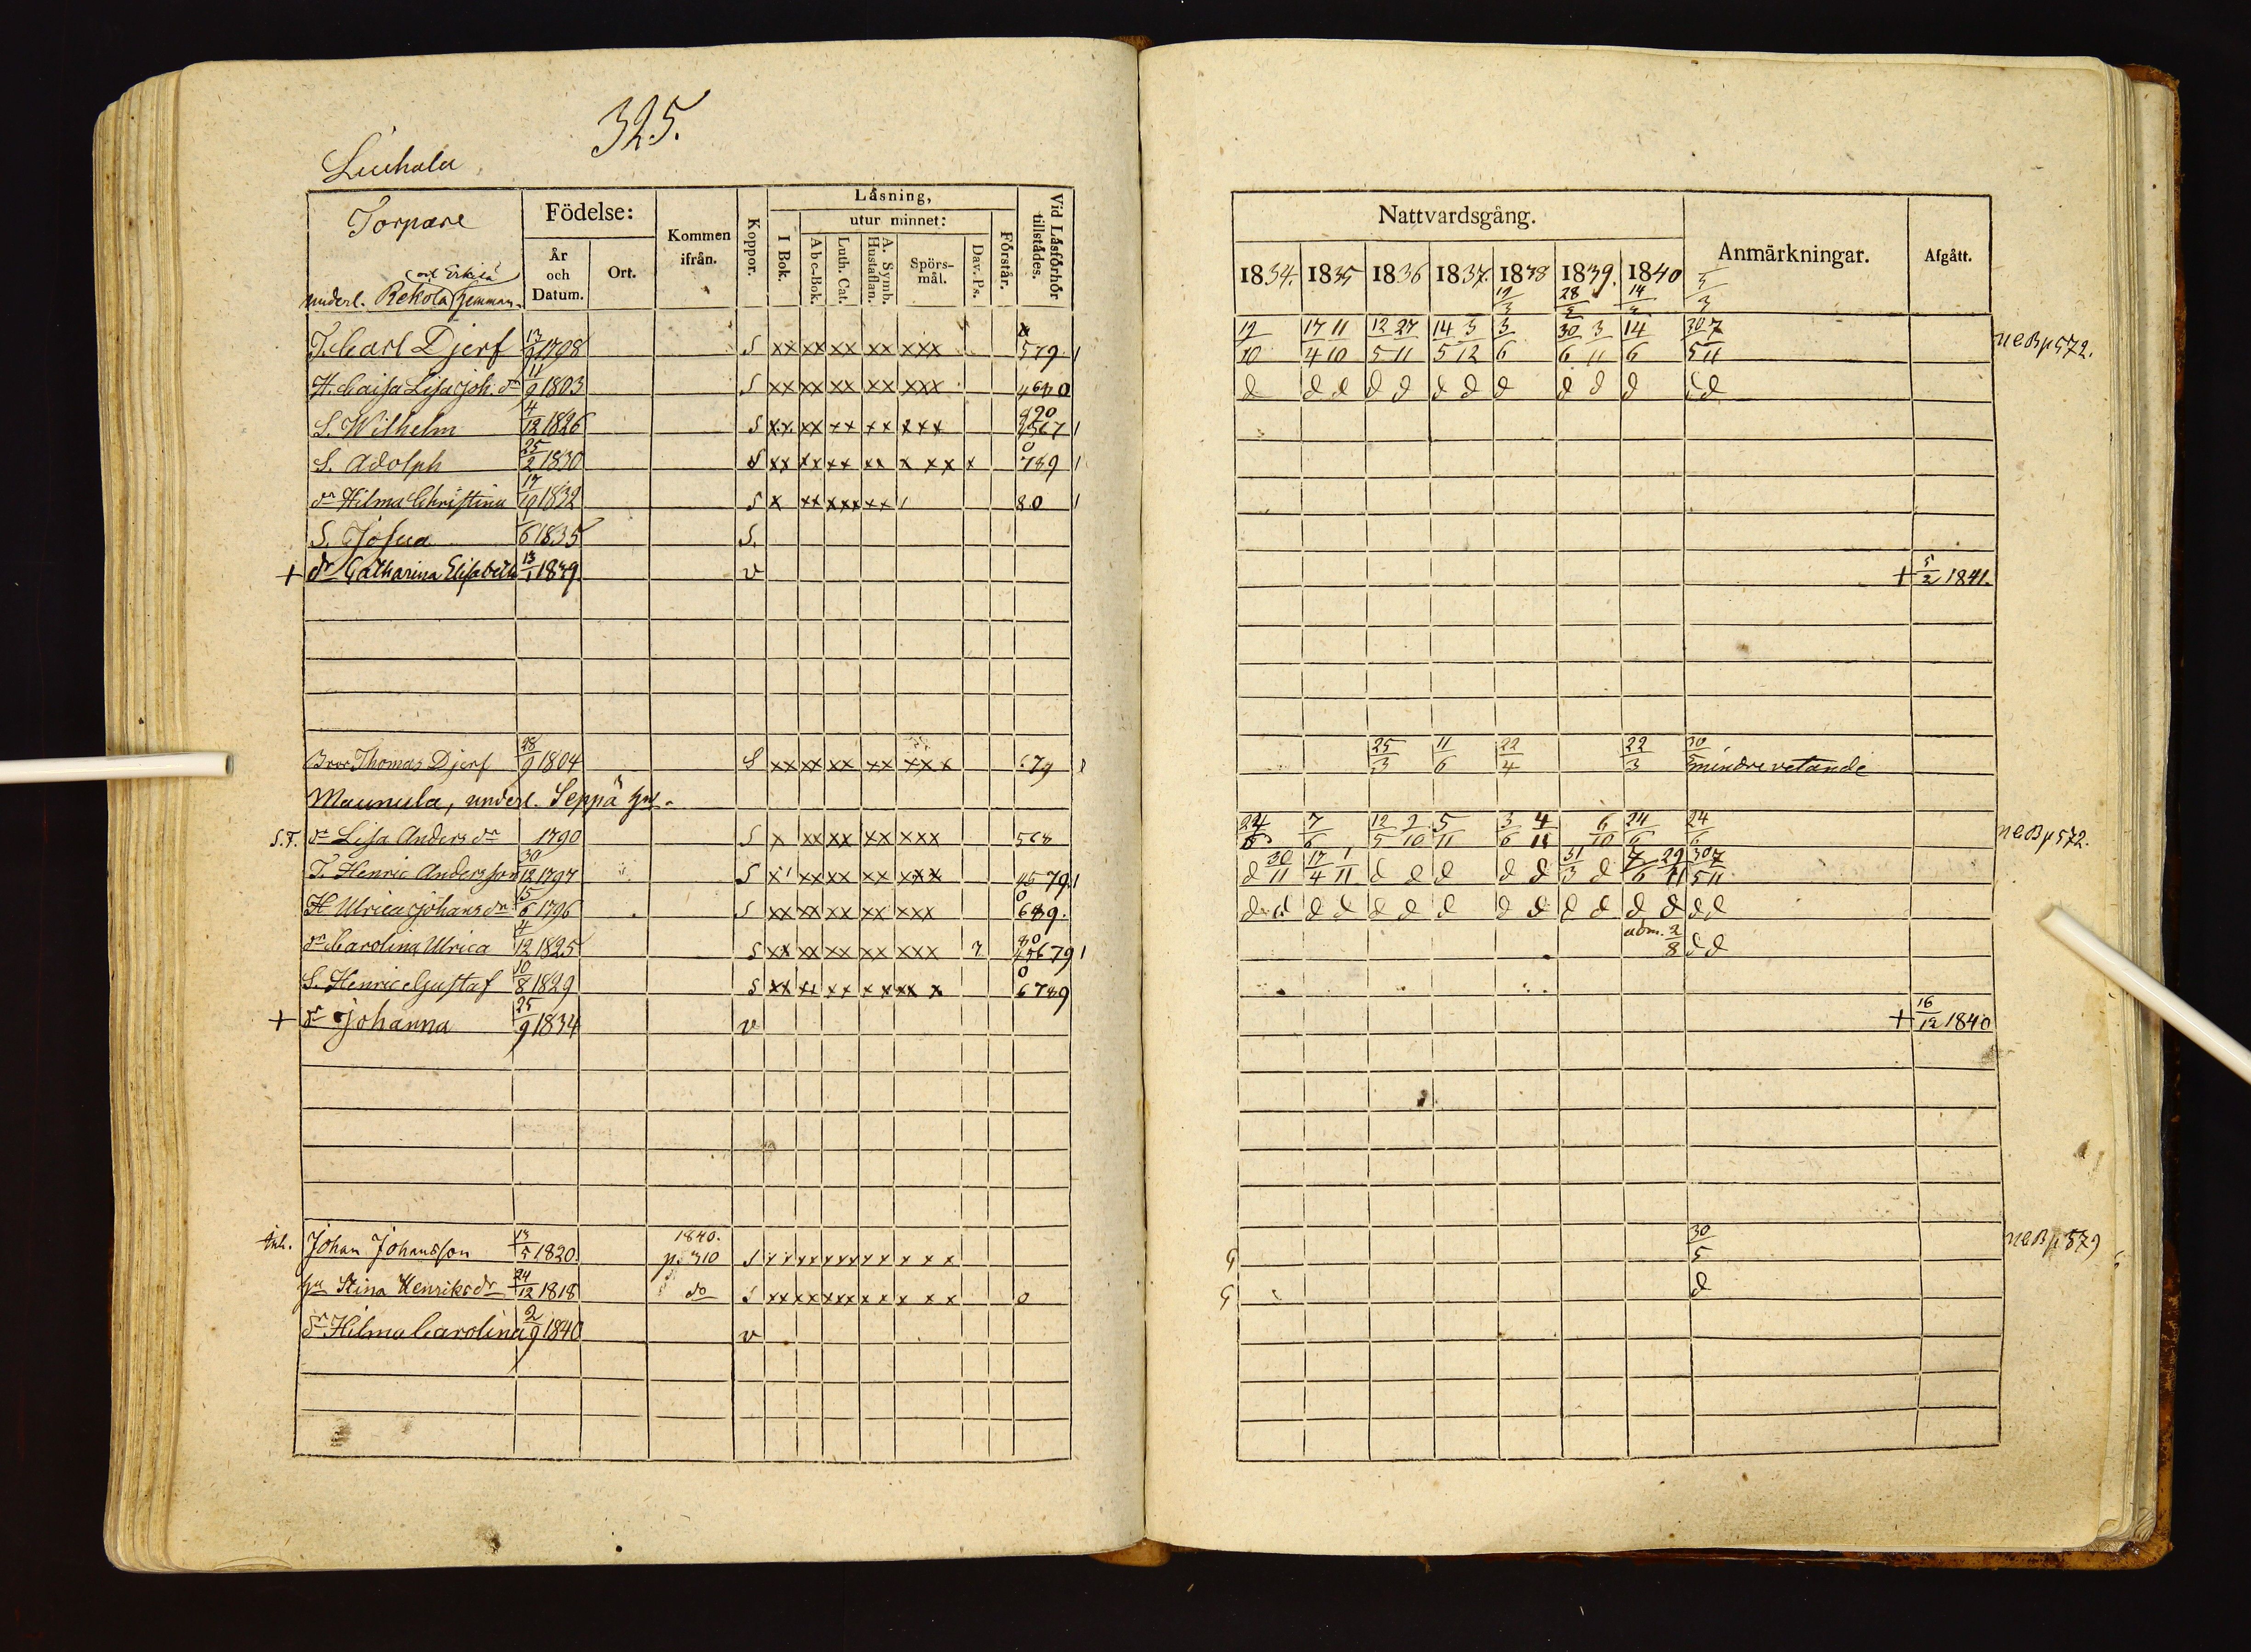 325.
Liuhala
Torpare
och Erkilä
underl. Rekola hemman.
Födelse:
År och Datum.
Ort.
Kommen ifrån.
Koppor.
Läsning,
I Bok.
utur minnet:
Abc-Bok.
Luth. Cat.
A. Symb. Hustaflan.
Spörsmål.
Dav. Ps.
Förstår.
Vid Läsförhör tillstådes.
T. Carl Djerf 13/9 1798 S xx xx xx xx xxx 579
H. Caisa Lisa Joh. dr 11/9 1803 S xx xx xx xx xxx
S. Wilhelm 4/12 1826 S xx xx xx xx xxx
S. Adolph 25/2 1830 S xx xx xx xx x xx x 0 789
dr Hilma Christina 17/10 1832 S x xx xxx xx 80
S. Josua 6 1835 S.
+ dr Catharina Elisabeth 13/1 1839. v
Bror Thomas Djerf 28/9 1804 S xx xx xx xx xxx 679
Maunula, underl. Seppä hn.
S.T. dr Lisa Anders dr 1790 S x xx xx xx xxx 568
T. Henric Andersson 30/12 1797 S x xx xx xx xxx 4579
H Ulrica Johans dr 15/6 1796 S xx xx xx xx xxx 0 689.
dr Carolina Ulrica 4/12 1825 S xx xx xx xx xxx 7 80 45679
S. Henric Gustaf 10/8 1829 S xx xx xx xx xx x 0 6789
+ dr Johanna 25/9 1834 v
Inh. Johan Johansson 13/5 1820. 1840. p. 310 S
hu Stina Henriksdr 24/12 1818 do S 0
dr Hilma Carolina 2/9 1840 v
Nattvardsgång.
Anmärkningar.
Afgått.
1834. 1835 1836 1837. 1838 1839. 1840
19/3 28/3 14/3 5/3
19/10 17/4 11/10 12/5 27/11 14/5 3/12 3/6 30/6 3/11 14/6 30/5 7/11 NCB p 572.
d d d d d d d d d d d d d
+ 5/2 1841.
25/3 11/6 22/4 22/3 30/5 mindre vetande
24/5 7/6 12/5 2/10 5/11 3/6 4/11 6/10 24/6 24/6 NCB p 572.
d 30/11 17/4 1/11 d d d d d 31/3 d 7/6 29/11 30/5 7/11
d d d d d d d d d d d d d d d
adm. 2/8 d d
+ 16/12 1840
G 30/5 NCB p 579
G d